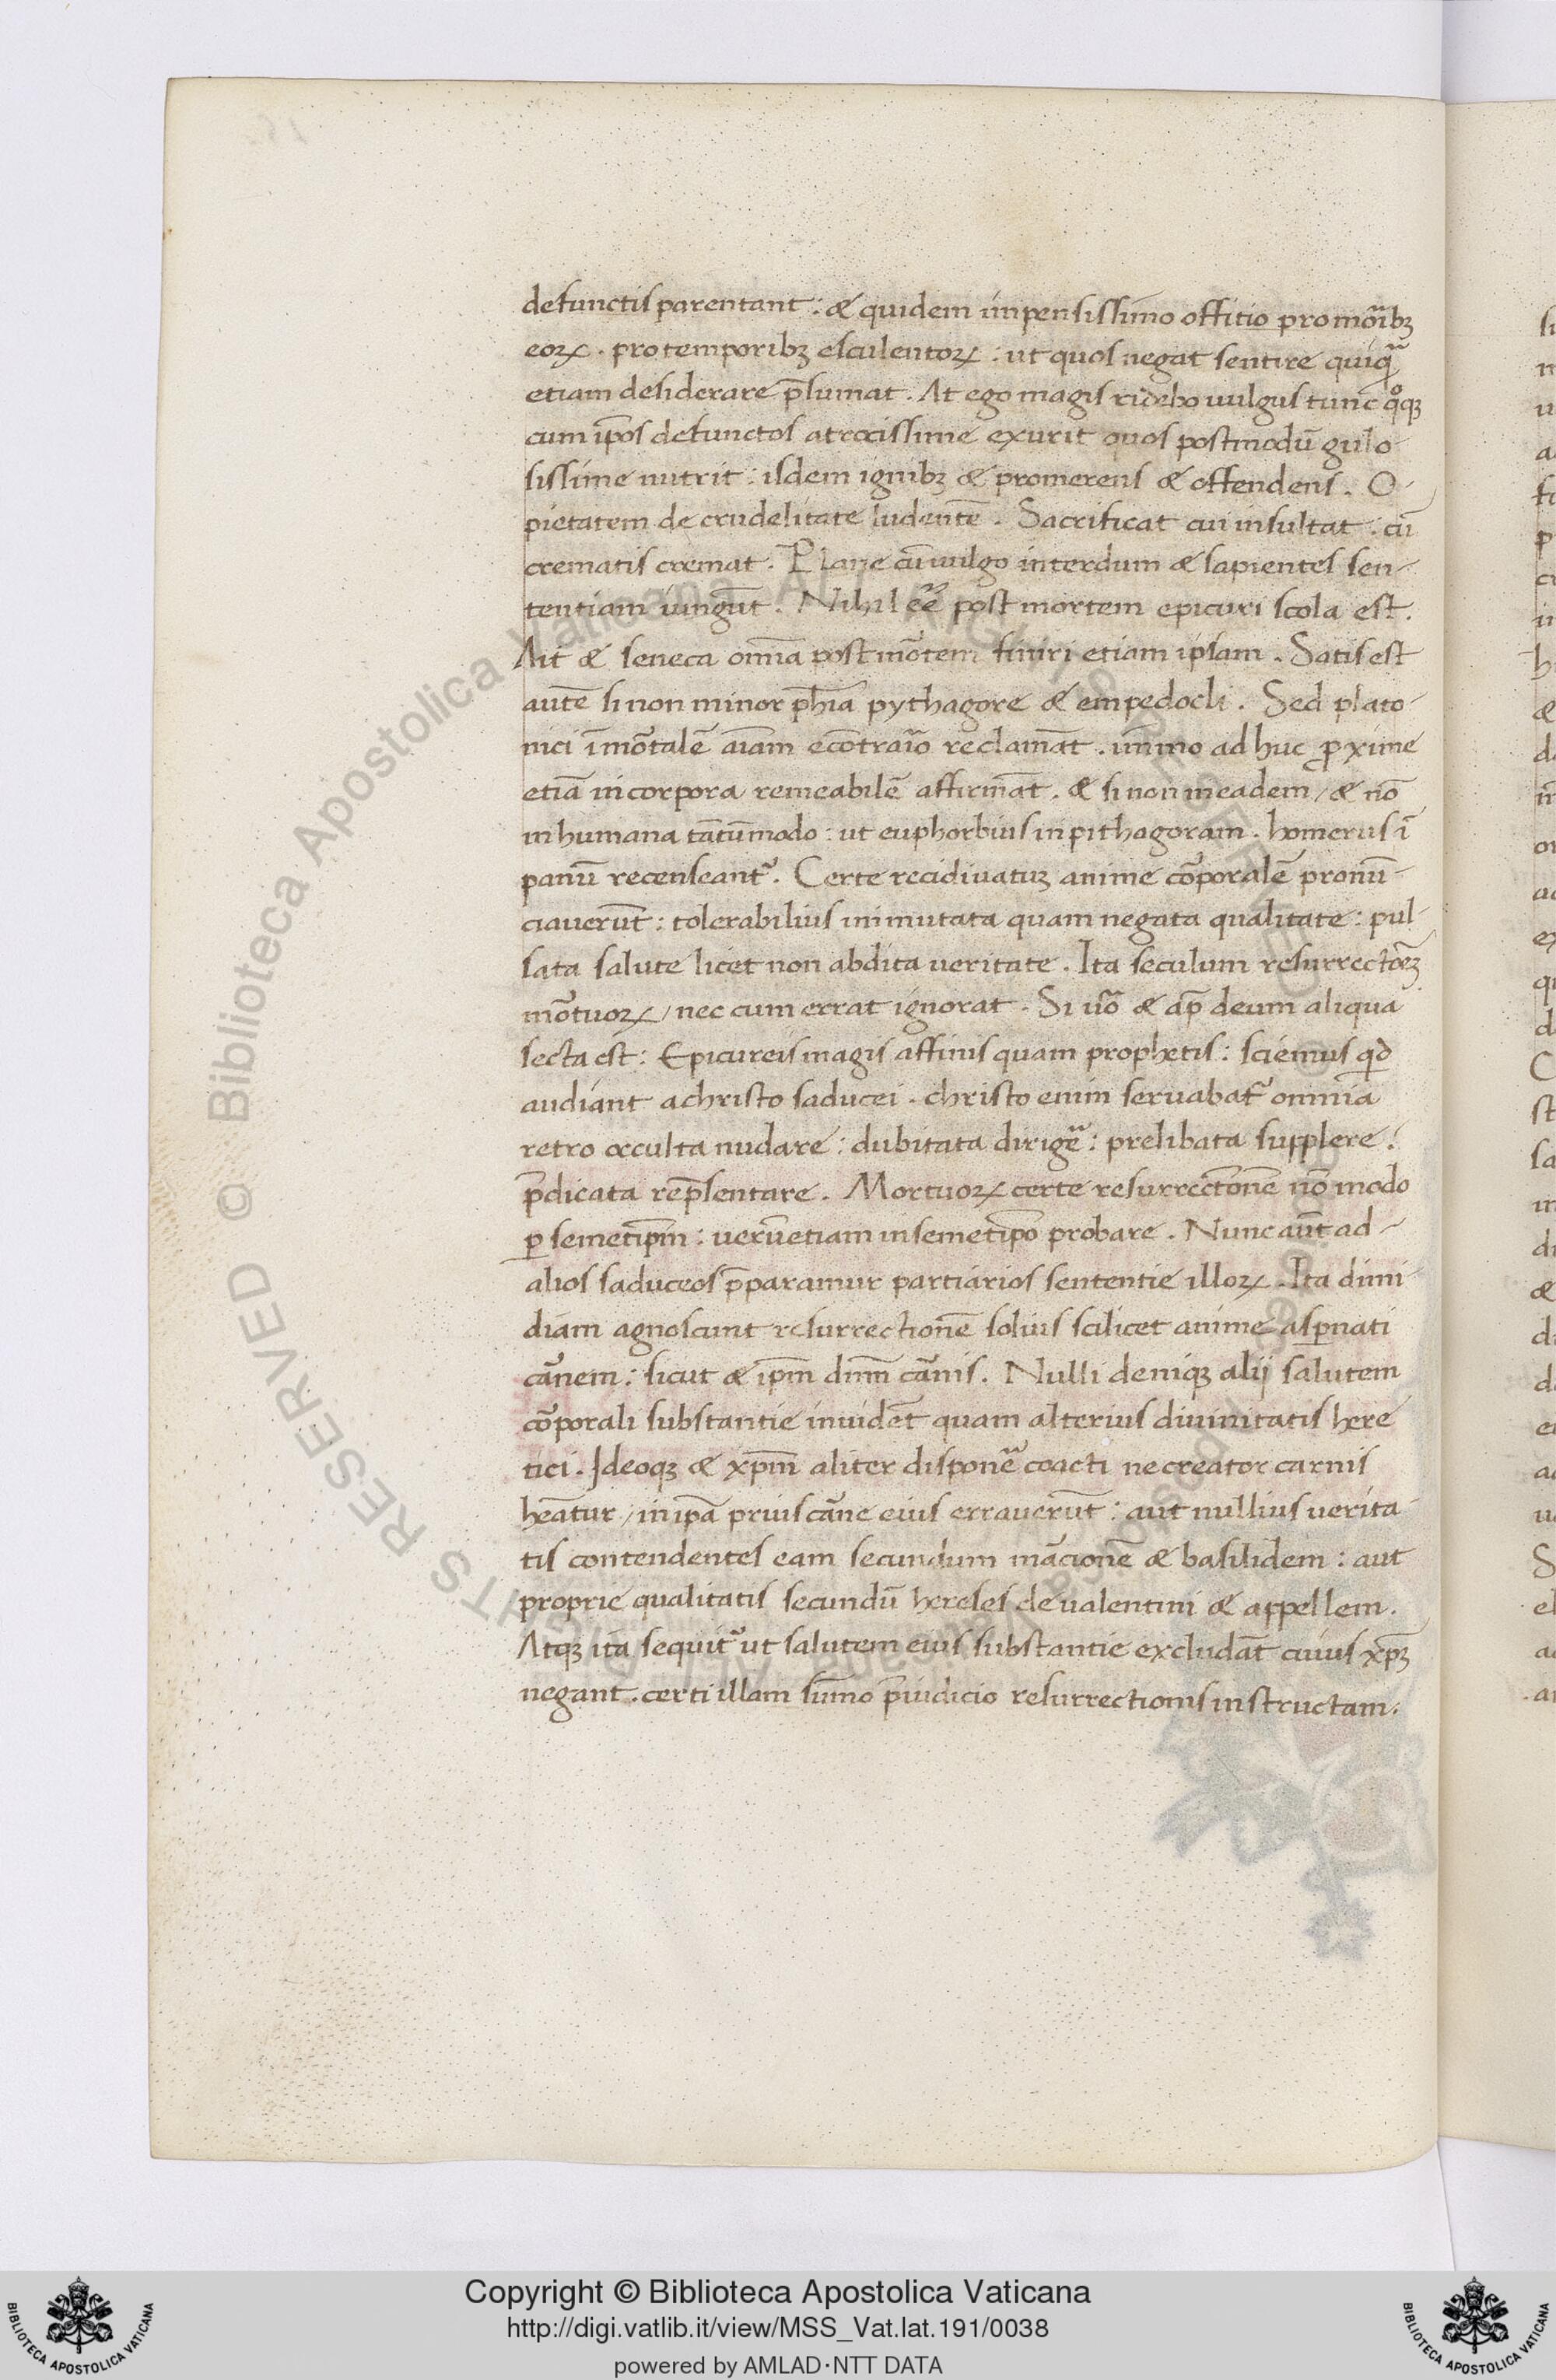 defunctis parentant : & quidem impensissimo offitio pro mōibꝫ
eoꝝ . pro temporibꝫ esculentoꝝ : ut quos negat sentire quiq̄
etiam desiderare p̄sumat . At ego magis ridebo uulgus tunc qͦqꝫ
cum ip̄os defunctos atrocissime exurit quos postmodū gulo-
sissime nutrit : isdem ignibꝫ & promerens & offendens . O
pietatem de crudelitate ludentē . Sacrificat an insultat . cū
crematis cremat . Plane cū uulgo interdum & sapientes sen-
tentiam iungūt . Nihil eē post mortem epicuri scola est .
Ait & seneca omīa post mōtem finiri etiam ipsam . Satis est
autē si non minor ph̄ia pythagore & empedocli . Sed plato-
nici īmōtalē aīam econtraīo reclamāt . immo ad huc ꝓxime
etiā in corpora remeabilē affirmāt . & si non in eadem / & nō
in humana tātūmodo : ut euphorbius in pithagoram . homerus ī
panū recenseant᷑ . Certe recidiuatuꝫ anime cōporalē pronū-
ciauerūt : tolerabilius inmutata quam negata qualitate : pul-
sata salute licet non abdita ueritate . Ita seculum resurrectōeꝫ
mōtuoꝝ / nec cum errat ignorat . Si uō & ap̄ deum aliqua
secta est : Epicureis magis affinis quam prophetis : sciemus qd̄
audiant a christo saducei . christo enim seruabat᷑ omnia
retro occulta nudare : dubitata dirigē : prelibata supplere :
p̄dicata rep̄sentare . Mortuoꝝ certe resurrectōnē nō modo
ꝑ semetip̄m : uerūetiam in semetip̄o probare . Nunc aūt ad-
alios saduceos p̄paramur partiarios sententie illoꝝ . Ita dimi-
diam agnoscunt resurrectionē solius scilicet anime asꝑnati
cānem : sicut & ip̄m dn̄m cānis . Nulli deniqꝫ alij salutem
cōporali substantie inuidēt quam alterius diuinitatis here
tici . Ideoqꝫ & xp̄m aliter disponē coacti ne creator carnis
heātur / in ip̄a prius cāne eius errauerūt : aut nullius uerita-
tis contendentes eam secundum mācionē & basilidem : aut
proprie qualitatis secundū hereses de ualentini & appellem .
Atqꝫ ita sequit᷑ ut salutem eius substantie excludāt cuius xp̄ꝫ
negant . certi illam sūmo p̄iudicio resurrectionis instructam .
© Biblioteca Apostolica Vaticana
ALL RIGHTS RESERVED
Copyright © Biblioteca Apostolica Vaticana
http://digi.vatlib.it/view/MSS_Vat.lat.191/0038
powered by AMLAD·NTT DATA
BIBLIOTECA APOSTOLICA VATICANA
BIBLIOTECA APOSTOLICA VATICANA